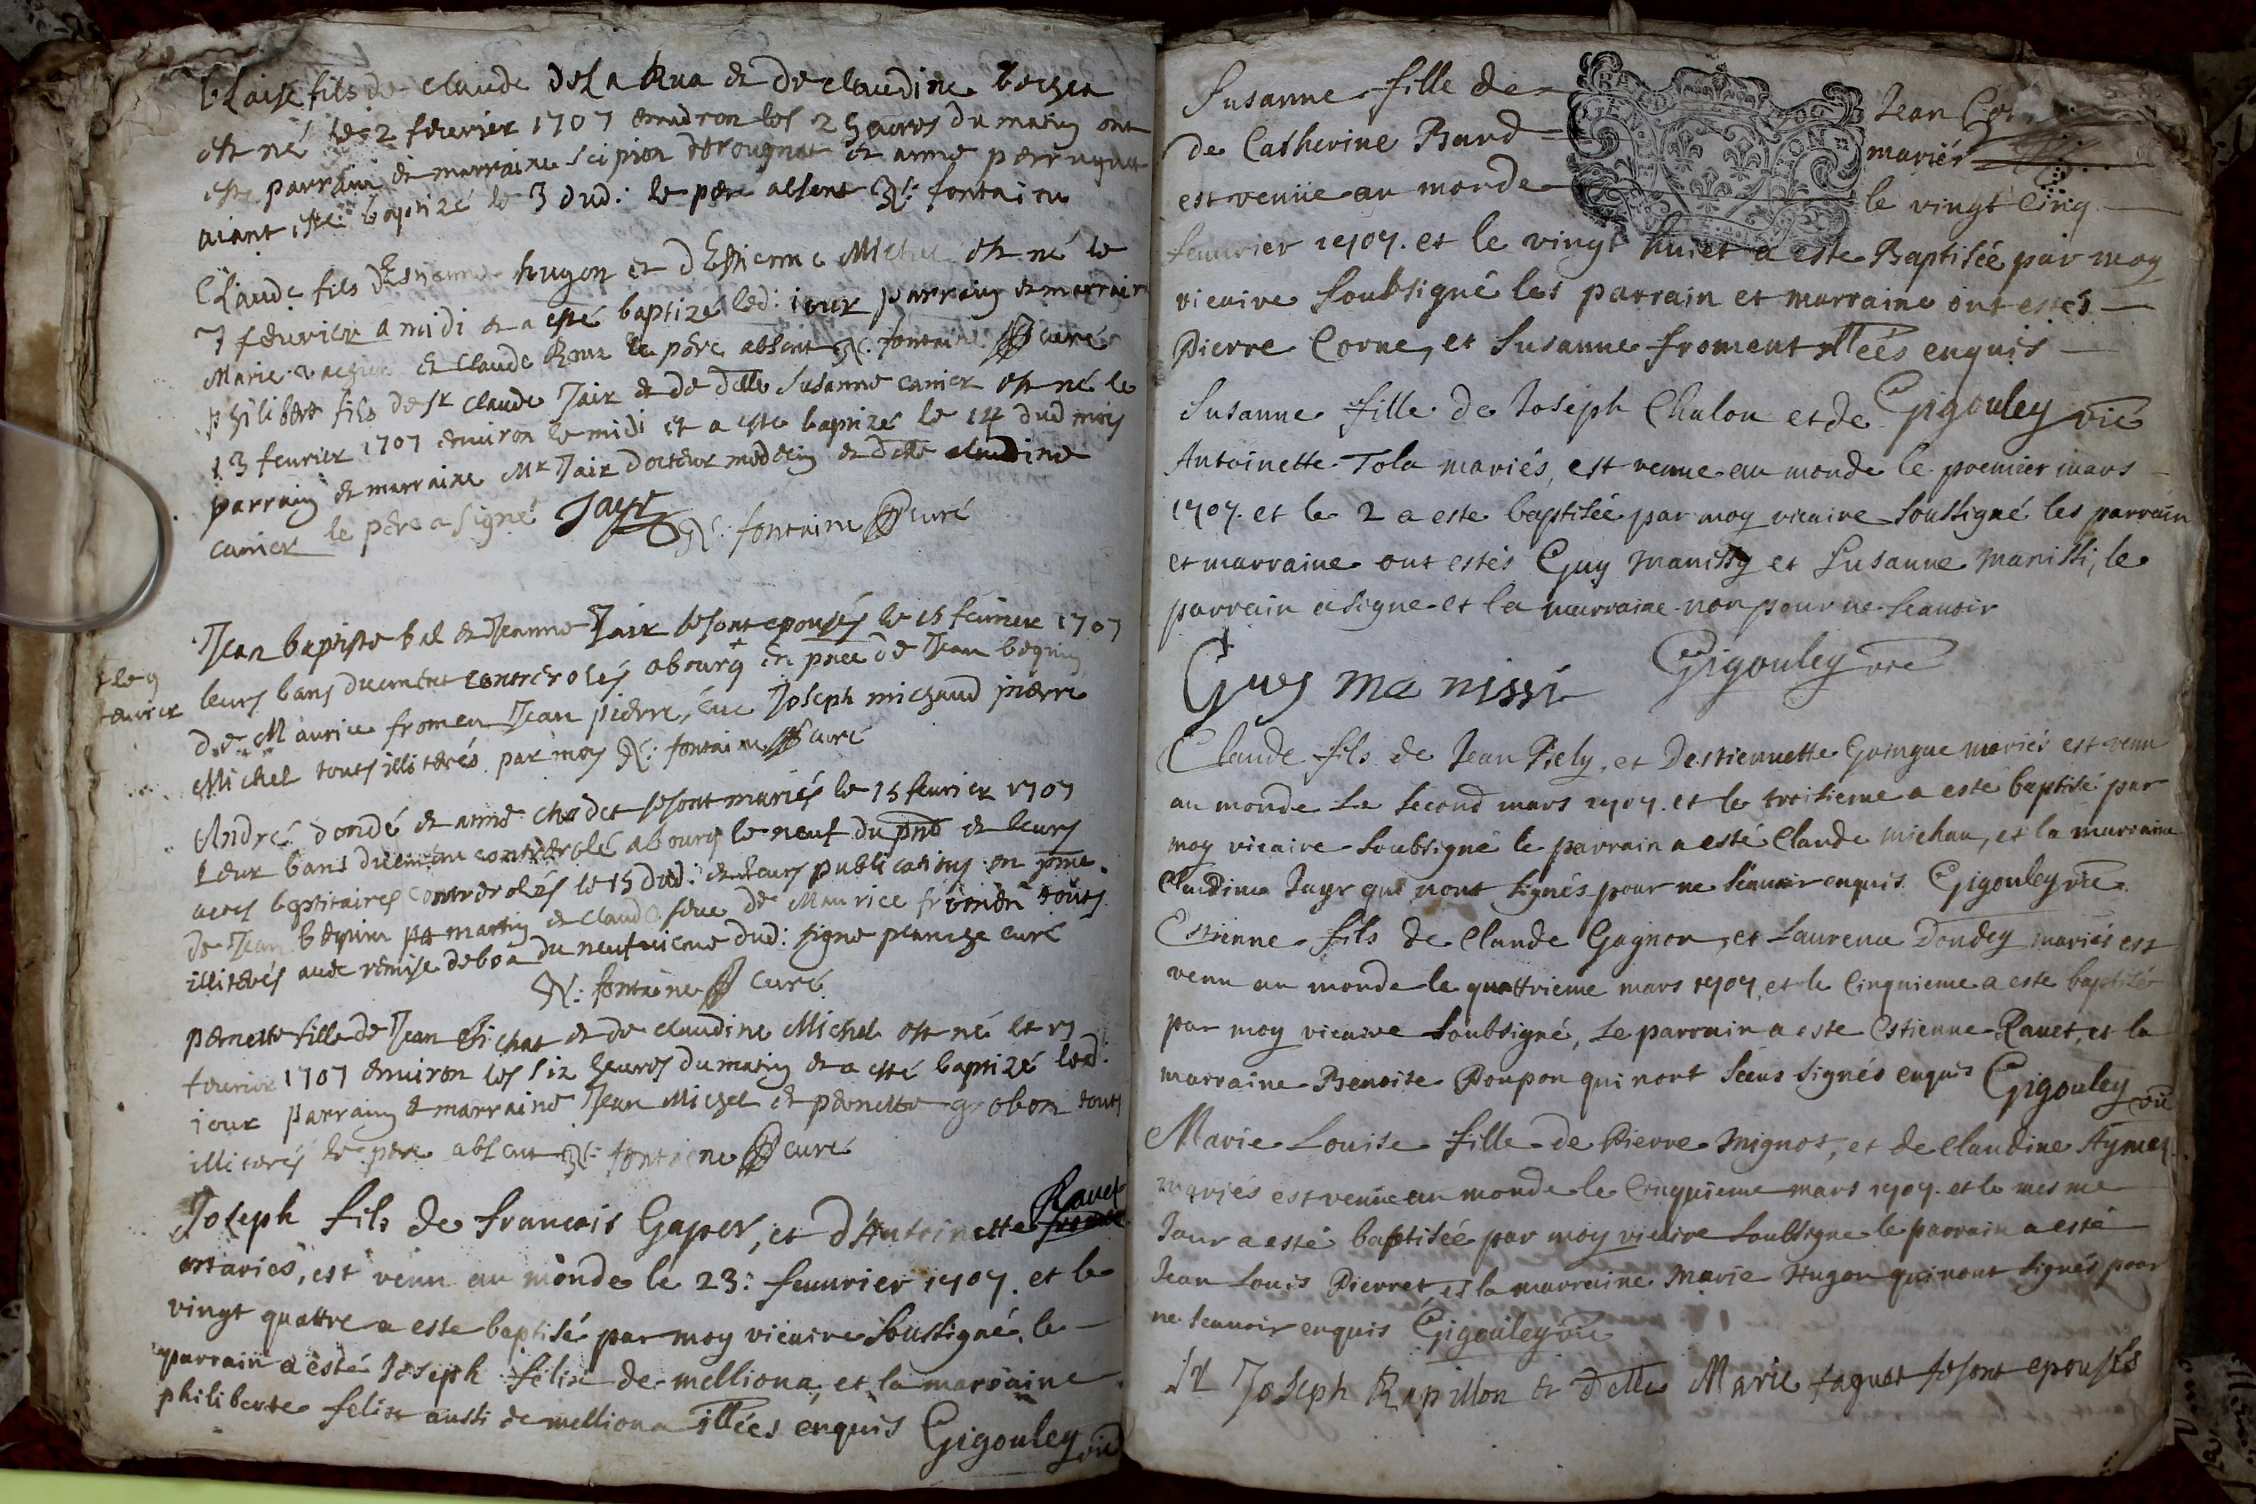 blaise fils de claude deLaRua et de claudine
est né le 2 feuvrier 1707 enuiron les 2 heures du matin ont
esté parrain et marraine scipion et anne
aiant esté baptizé le 3 dud: le pere absent N: fontaine
Claude fils d'Estienne hugon et d'Estienne Michel est né le
7 feuvrier a midi et a esté baptizé led: iour parrain et marraine
Marie vacher et claude Roux le pere absent N: fontaine curé
philibert fils de sr claude Jair et de delle Susanne carrier est né le
13 feurier 1707 enuiron le midi et a este baptizé le 14 dud mois
parrain et marraine Mr Jair docteur medecin et delle claudine
carrier le pere a signé Jayr N: fontaine curé
Jean baptiste bal et Jeanne Jair se sont epousés le 15 feurier 1707
+ le 9
feurier
leurs bans duement controrolés a bourg + en pnce de Jean bequin
de Maurice fromen Jean pierre, Joseph michaud pierre
Michel touts illiterés par moy N: fontaine curé
André dondé et anne chodet se sont mariés le 15 feurier 1707
Leur bans duemen controrolé a bourg le neuf du pnt et leurs
actes baptitaires controrolés le 15 dud: et leurs publications en pnce
de Jean bequin martin et claude feue de Maurice fromen touts
illiterés auec remise de boa du neufuieme dud: signe planche curé
N: fontaine curé
pernette fille de Jean Bichat et de claudine Michel est né le
feurier 1707 enuiron les six heures du matin et a esté baptizé led:
iour parrain et marraine Jean Michel et pernette grobon touts
illiterés le pere absent N: fontaine curé
Joseph fils de francois Gaper, et d'Antoinette Rauet
mariés, est venu au monde le 23: feuurier 1707. et le
vingt quattre a este baptisé par moy vicaire soussigné, le
parrain a esté Joseph felix de melliona, et la marraine
philiberte felix aussi de melliona illées enquis Gigouley vic
Susanne fille de Jean Cor
de Catherine Bard mariés
est venüe au monde le vingt Cinq
feuurier 1707. et le vingt huict a este Baptisée par moy
vicaire soubsigné les parrain et marraine ont estés
Pierre Corne, et Susanne froment illées enquis
Gigouley vic
Susanne fille de Joseph Chalon et de
Antoinette Tola mariés, est venue au monde le premier mars
1707. et le 2 a este baptisée par moy vicaire soussigné les parrain
et marraine ont estés Guy manissy et Susanne manissi, le
parrain a signe et la marraine non pour ne scauoir
Guy manissi Gigouley vic
Claude fils de Jean Piely, et Destiennette Goingue mariés est venu
au monde Le second mars 1707. et le troisieme a este baptisé par
moy vicaire soubsigné le parrain a esté Claude michau, et la marraine
Claudine Jayr qui nont signés pour ne sçauoir enquis Gigouley vic
Estienne fils de Claude Gagnon, et Laurence Dondey mariés est
venu au monde le quattrieme mars 1707, et le Cinquieme a este baptisé
par moy vicaire soubsigné, Le parrain a este Estienne Rauet, et la
marraine Benoite Poupon qui nont sceus signés enquis Gigouley vic
Marie Louise fille de Pierre mignot, et de Claudine Aymey
mariés est venüe au monde le Cinquieme mars 1707. et le mesme
Jour a esté baptisée par moy vicaire soubsigné le parrain a esté
Jean Louis Pierret, et la marraine marie Hugon qui nont signés pour
ne scauoir enquis Gigouley vic
Sr Joseph Rapillon et delle Marie faguet se sont epousés